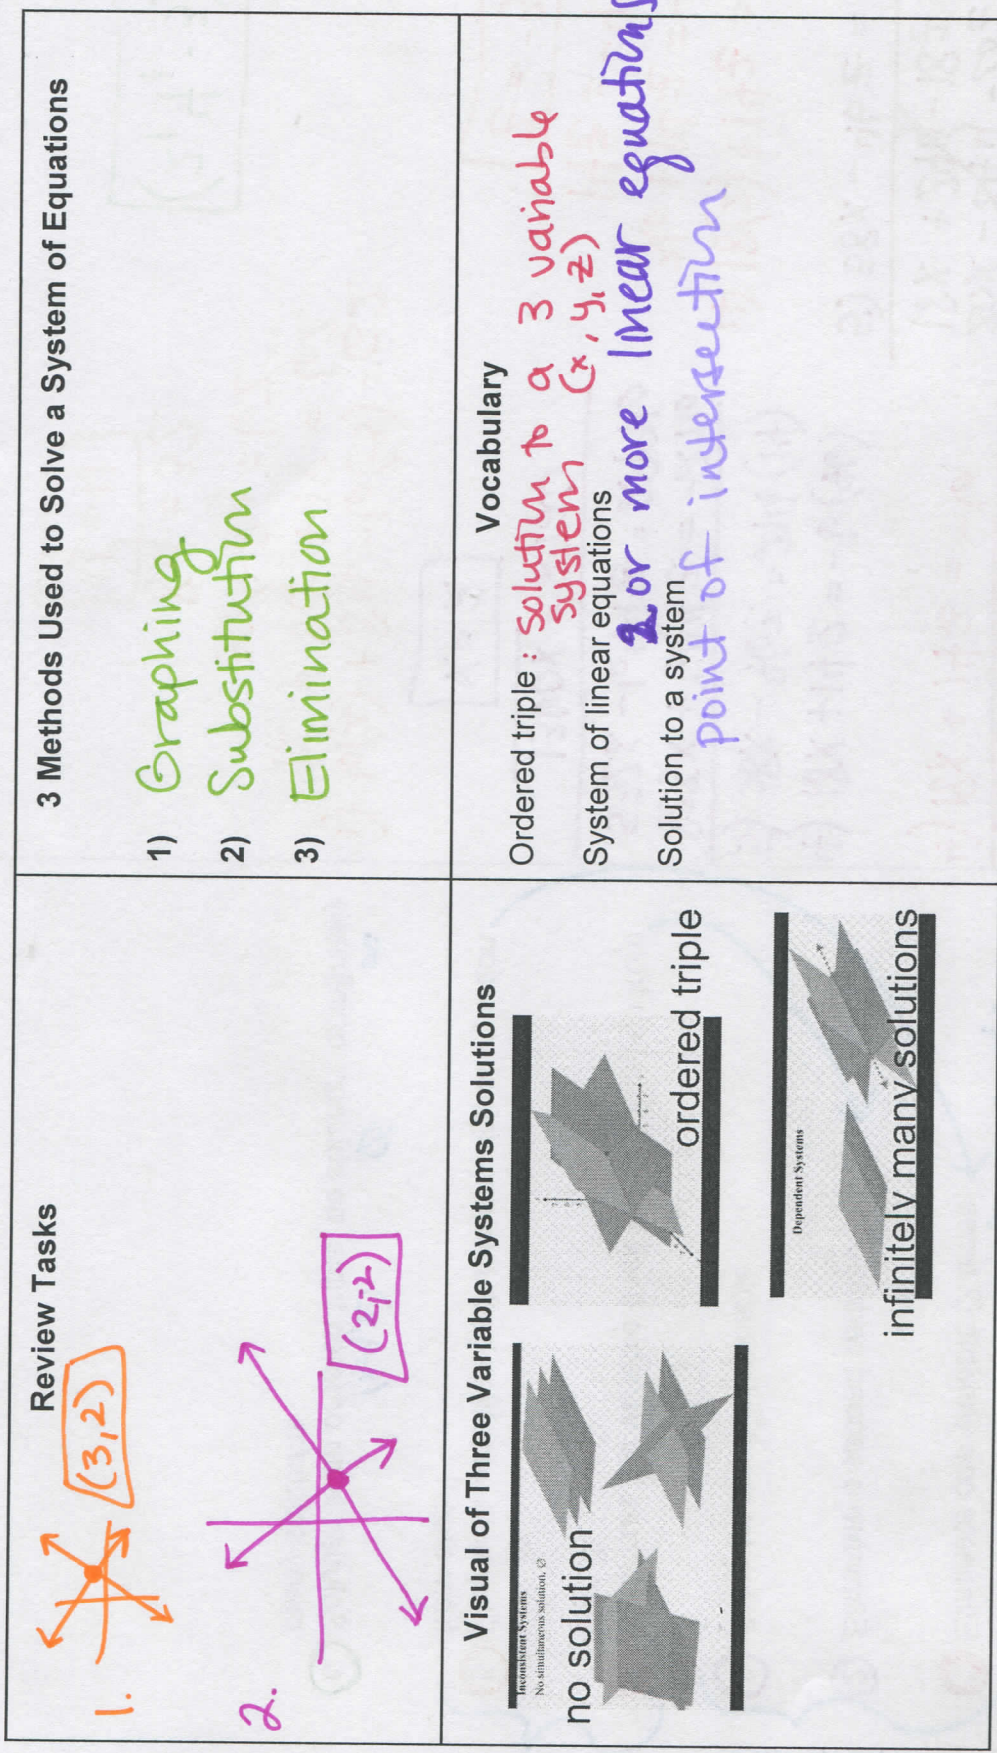 Review Tasks
1.
(3,2)
2.
(2,-2)
3 Methods Used to Solve a System of Equations
1) Graphing
2) Substitution
3) Elimination
Visual of Three Variable Systems Solutions
Inconsistent Systems
No simultaneous solution, Ø
no solution
ordered triple
Dependent Systems
infinitely many solutions
Vocabulary
Ordered triple : solution to a 3 variable
system (x, y, z)
System of linear equations
2 or more linear equations
Solution to a system
point of intersection